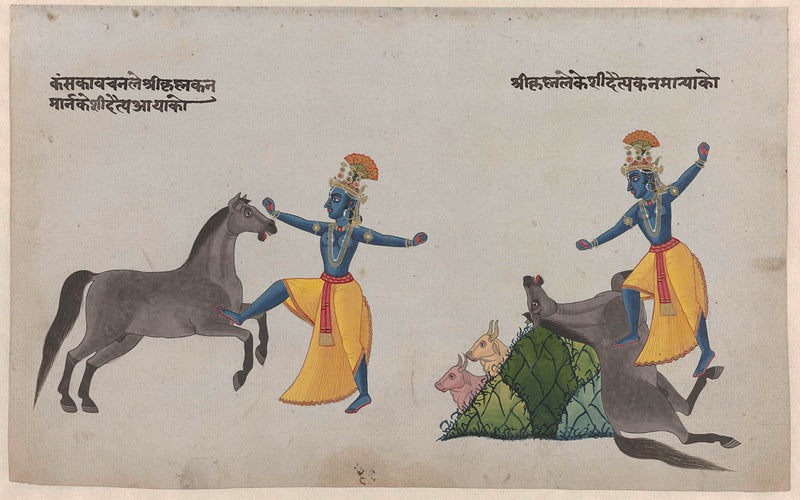 कंसकावचनले श्रीकृष्णकन
मार्नकेशीदैत्यआयाको
श्रीकृष्णलेकेशीदैत्यकनमार्‍याको